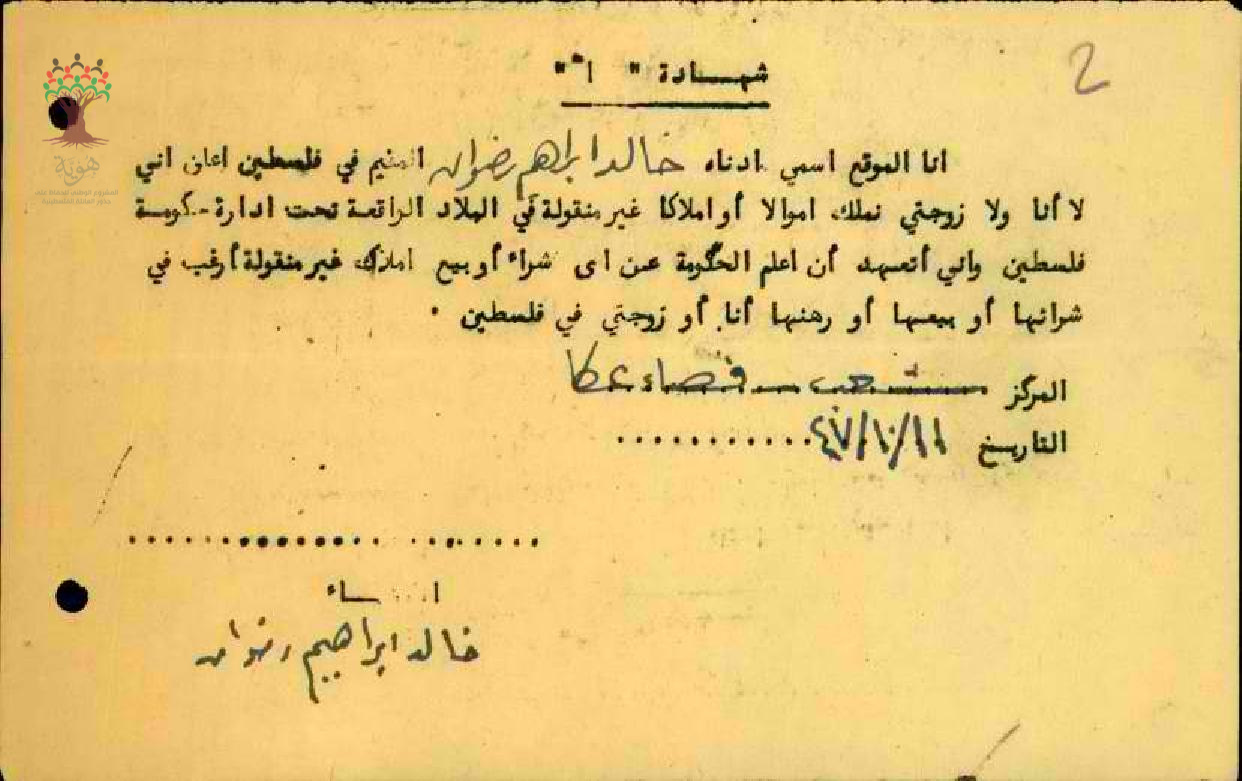 2
شهـادة " أ "
انا الموقع اسمي ادناه خالد ابراهيم رضوان المقيم في فلسطين اعلن اني
لا أنا ولا زوجتي نملك اموالا أو املاكا غير منقولة في البلاد الواقعة تحت ادارة حكومة
فلسطين واني أتعهد أن اعلم الحكومة عن اى شراء أو بيع املاك غير منقولة أرغب في
شرائها أو بيعها أو رهنها أنا أو زوجتي في فلسطين .
المركز شعب - قضاء عكا
التاريخ ١١/١٠/٤٧
الامضـاء
خالد ابراهيم رضوان
هوية